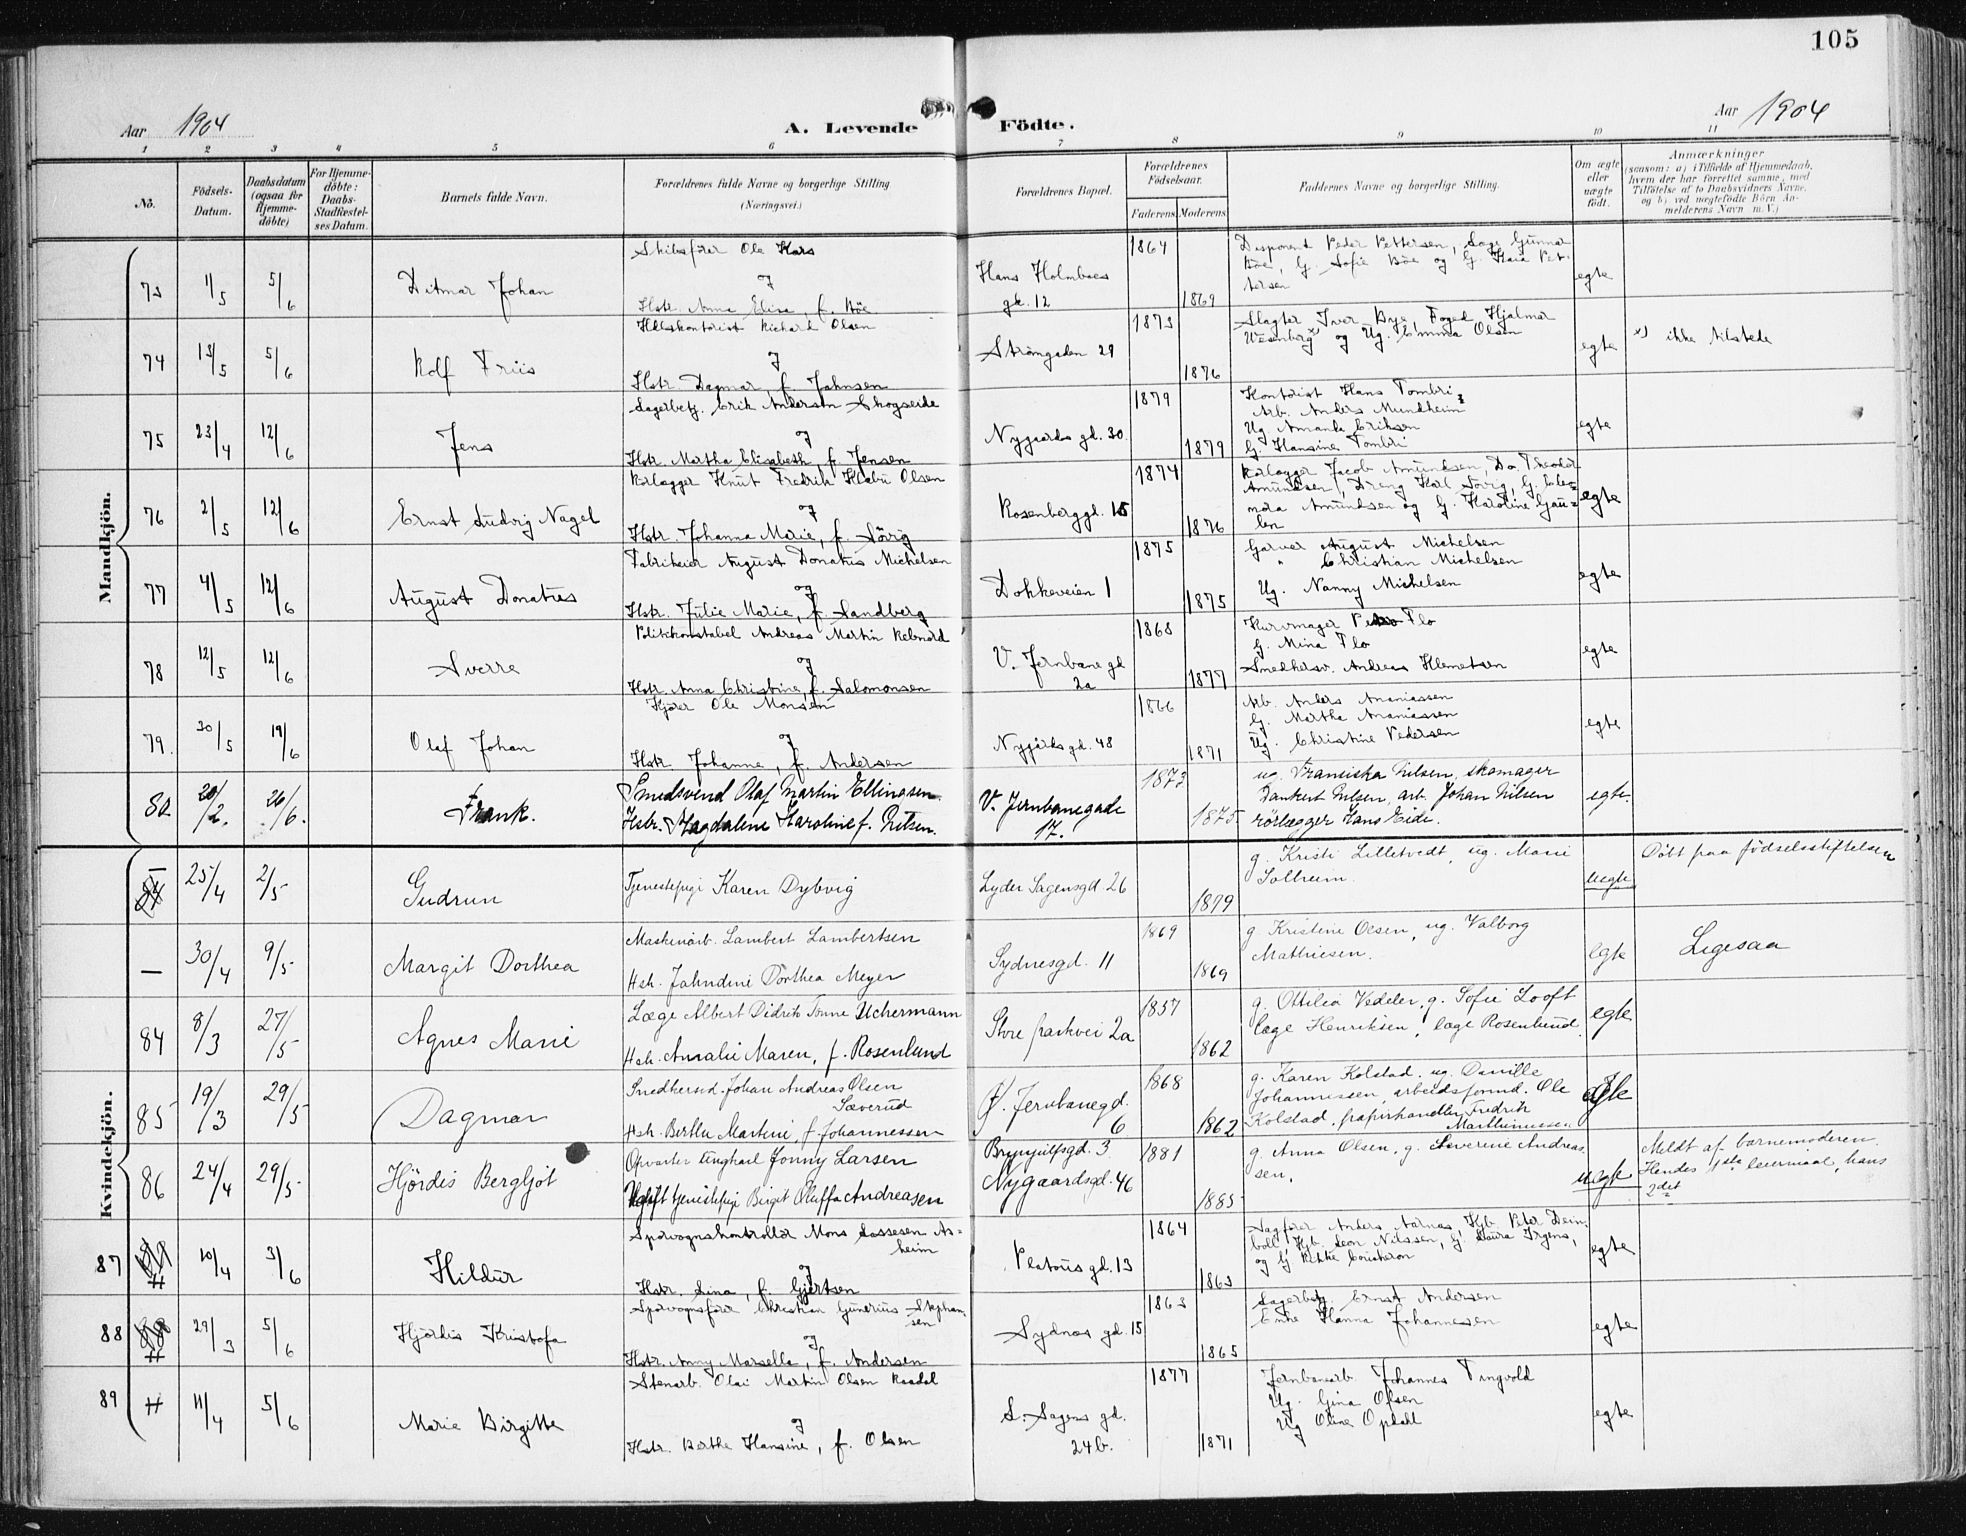 105
Aar 1904
A. Levende Födte.
Aar 1904
1 2 3 4 5 6 7 8 9 10 11
No.
Födsels-Datum.
Daabsdatum (ogsaa for Hjemme-döbte)
For Hjemme-döbte: Daabs-Stadfæstel-ses Datum.
Barnets fulde Navn.
Forældrenes fulde Navne og borgerlige Stilling
(Næringsvei.)
Forældrenes Bopæl.
Forældrenes Födselsaar.
Faderens Moderens
Faddernes Navne og borgerlige Stilling.
Om ægte eller uægte födt.
Anmærkninger
(saasom: a) i Tilfælde af Hjemmedaab, hvem der har forrettet samme, med Tilföielse af to Daabsvidners Navne, og b) ved uægtefödte Börn Anmelderens Navn m. V.)
Mandkjön.
73 1/5 5/6 Ditmar Johan
Skibsförer Ole Kars
og
Hstr. Anna Elisa, f. Böe
Hans Holmboes
gt. 12
1864 1869
Disponent Peder Pettersen, Gunnar
Böe, G. Sofie Böe og G. Kaia Pet-
tersen
egte
74 13/5 5/6 Rolf Friis
Hdlskontorist Richard Olsen
og
Hstr. Dagmar, f. Jahnsen
Strömgaden 29
1873 1876
Slagter Iver Bye, Foged Hjalmar
Wesenberg x) og Ug. Emma Olsen
egte
x) ikke tilstede
75 23/4 12/6 Jens
Lagerbetj. Erik Anderson Skogseide
og
Hstr. Martha Elisabeth, f. Jensen
Nygaards gd. 30
1879 1879
Kontorist Hans Tombri
Arb. Anders Mundheim
Ug. Amanda Eriksen
G. Hansine Tombri
egte
76 2/5 12/6 Ernst Ludvig Nagel
Rörlægger Knut Fredrik Olsen
og
Hstr. Johanna Marie, f. Sörig
Rosenberggd. 15
1874 1876
Rörlægger Jacob Amundsen, Do. Theodor
Amundsen, Dreng Karl Sörig, G. Eleo-
nora Amundsen og G. Karoline Gau-
len
egte
77 4/5 12/6 August Donatus
Fabrikeier August Donatus Michelsen
og
Hstr. Julie Marie, f. Sandberg
Dokkeveien 1
1875 1875
Garver August Michelsen
" Christian Michelsen
Ug. Nanny Michelsen
egte
78 12/5 12/6 Sverre
Politikonstabel Andreas Martin Rebnord
og
Hstr. Anna Christine, f. Salomonsen
V. Jernbane gd
2a
1868 1877
Kurvmager Flo
G. Mina Flo
Snedkersv. Andreas Klemetsen
egte
79. 30/5 19/6 Olaf Johan
Kjörer Ole Monsen
og
Hstr. Johanna, f. Andersen
Nygårds gd. 48
1866 1871
Arb. Anders Ananiassen
G. Martha Ananiassen
Ug. Christine Pedersen
egte
80. 20/2. 26/6. Frank.
Smedsvend Olaf Martin Ellingsen.
Hstr. Magdalene Karoline f. Nilsen.
V. Jernbanegade
17.
1873 1875.
ug. Fransiska Nilsen, skomager
Dankert Nilsen, arb. Johan Nilsen
rörlægger Hans Eide.
egte.
Kvindekjön.
— 25/4 2/5 Gudrun
Tjenestepige Karen Dybvig
Lyder Sagensgd 26
1879
g. Kristi Lilletvedt, ug. Marie
Solheim.
uegte
Döbt paa födselsstiftelsen
— 30/4 9/5 Margit Dorthea
Maskinarb. Lambert Lambertsen
Hstr. Jahndine Dorthea Meyer
Sydnesgd. 11
1869 1869
g. Kristine Olsen, ug. Valborg
Mathiesen.
egte
Ligesaa
84 8/3 27/5 Agnes Marie
Læge Albert Didrik Tonne Uchermann
Hstr. Amalie Maren, f. Rosenlund
Store parkvei 2a
1857 1862
g. Ottilia Vedeler, g. Sofie Looft
læge Henriksen, læge Rosenlund
egte
85 19/3 29/5 Dagmar
Snedkersvd. Johan Andreas Olsen
Sæverud
Hstr. Berthe Martine, f. Johannessen
Ø. Jernbanegd.
6
1868 1862
g. Karen Kolstad. ug. Danille
Johannessen, arbeidsformd. Ole
Kolstad, papirhandler Fredrik
Marthinussen
egte
86 24/4 29/5 Hjördis Bergljot
Opvarter ungkarl Jonny Larsen
Ugift tjenestepige Birgit Oluffa Andreasen
Brynjulfsgd. 3
Nygaardsgd. 46
1881 1885
g. Anna Olsen, g. Severine Andreas
sen.
uegte
Meldt af barnemoderen.
Hendes 1ste leiermaal, hans
2det
87 10/4 3/6 Hildur
Sporvognskontrollör Mons Sassesen As-
heim
og
Hstr. Lina, f. Gjertsen
Platous gd. 13
1864 1863
Sagförer Anders Aarnes, Hjb. Peter Dein-
boll, Hjb. Leon Nilssen, G. Laura Irgens,
og G. Rikke
egte
88 29/3 5/6 Hjördis Kristofa
Sporvognsförer Christian Gunerius Stephan-
sen
og
Hstr. Anny Marsella, f. Andersen
Sydnes gd. 15
1863 1865
Lagerbetj. Ernst Andersen
Enke Hanna Johannesen
egte
89 11/4 5/6 Marie Birgitte
Stenarb. Olai Martin Olsen Raadal
og
Hstr. Berthe Hansine, f. Olsen
L. Sagens gd.
24b.
1877 1871
Jernbanearb. Johannes Tingvold
Ug. Gina Olsen
Ug Oline Opdahl
egte